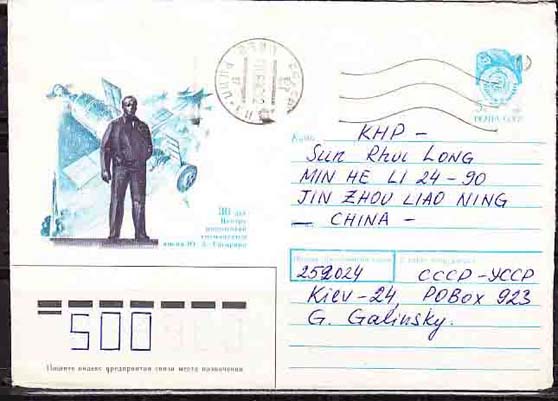 ПОЧТА СССР
30 лет
Центру
подготовки
космонавтов
имени Ю. А. Гагарина
Куда
КНР -
Sun Rhui LONG
MIN HE LI 24-90
JIN ZHOU LIAO NING
- CHINA -
252024 СССР-УССР
Kiev-24, POBox 923
G. Galinsky.
500
Пишите индекс предприятия связи места назначения